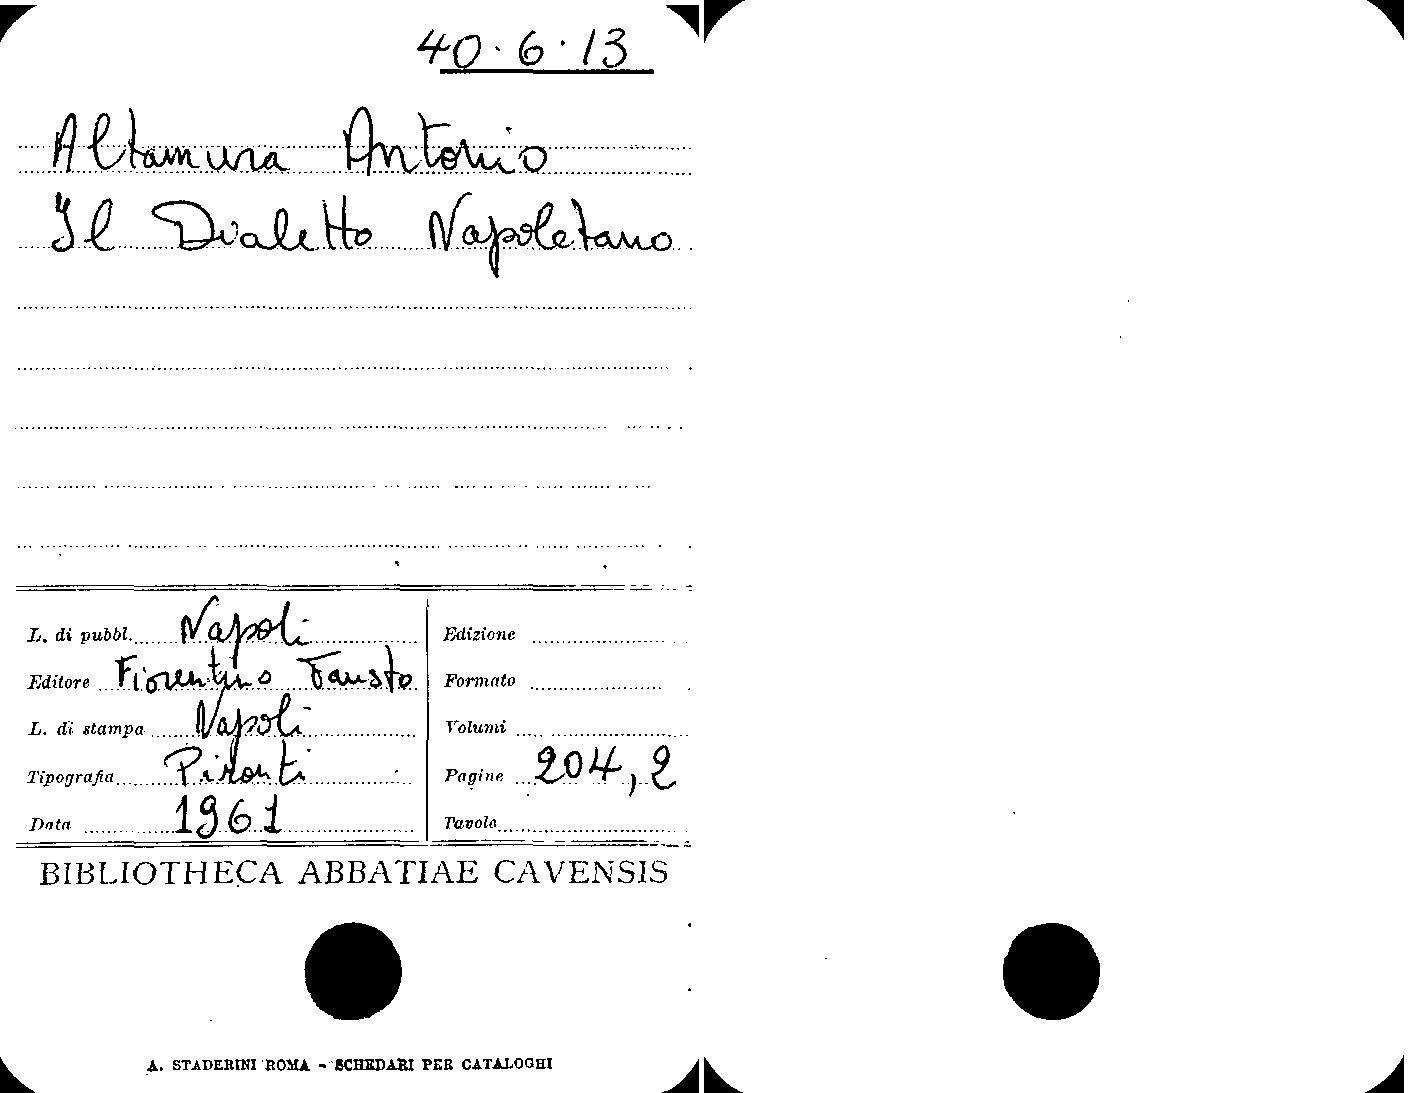 40.6.13
Altamura Antonio
Il Dialetto Napoletano
L. di pubbl. Napoli
Editore Fiorentino Fausto
L. di stampa Napoli
Tipografia Pironti
Data 1961
Edizione
Formato
Volumi
Pagine 204, 2
Tavole
BIBLIOTHECA ABBATIAE CAVENSIS
A. STADERINI ROMA - SCHEDARI PER CATALOGHI